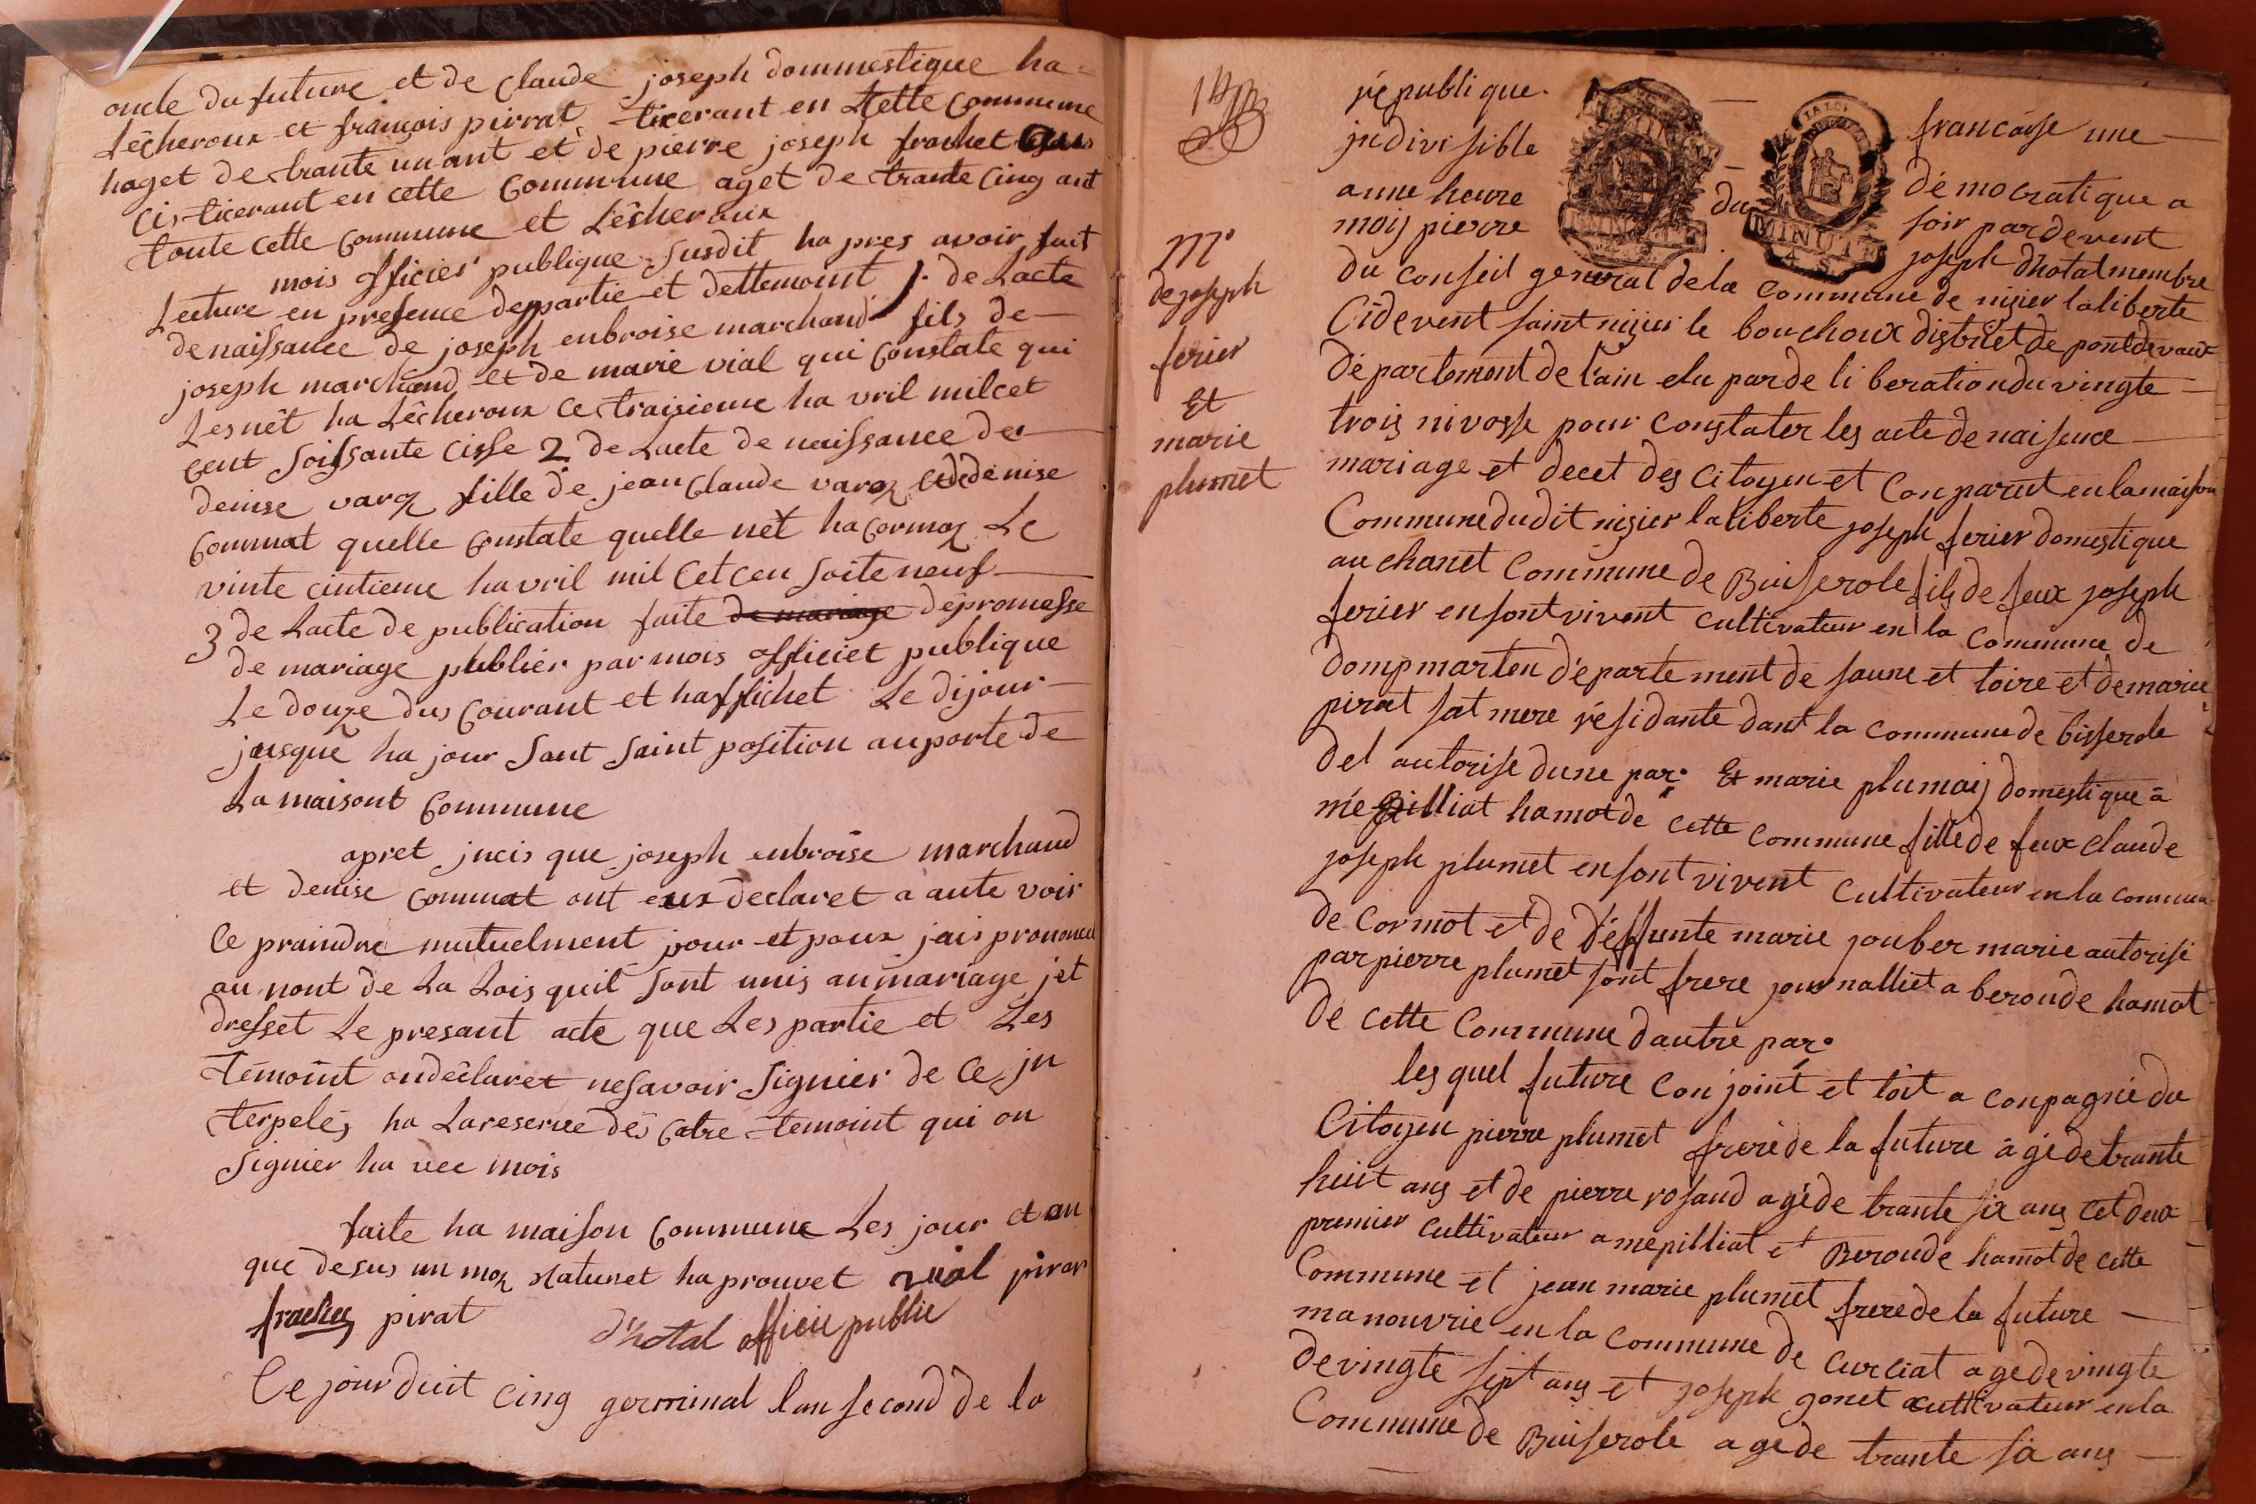 oncle du future et de claude joseph dommestique ha
Lêcheroux et françois pirrat ticerant en Cette Commune
haget de trante un ant et de pierre joseph frachet
ci, ticerant en cette Commune aget de trante Cinq ant
toute cette Commune et Lêcheroux
mois officier publique susdit ha pres avoir fait
Lecture en presence de partie et dettemoint 1. de Lacte
de naissance de joseph enbroise marchand fils de
joseph marchand et de marie vial qui Constate qui
Les nêt ha Lêcheroux ce traisieme ha vril milcet
cent soissante cisse 2 de Lacte de naissance de
denise varoz fille de jean Claude varoz et de denise
Commat quelle Constate quelle net ha Cormoz Le
vinte cintieme ha vril mil Cet cen soite neuf
3 de Lacte de publication faite de mariage de promesse
de mariage publiér par mois officiet publique
Le douze dus Courant et haffichet Le dijour
jusque ha jour sant saint position au porte de
La maisont Commune
apret jncis que joseph enbroise marchand
et denise Commat ont eux declaret a aute voir
Ce praindre mutuelment pour et poux jais prononcu
au nont de La Lois quil sont unis au mariage jet
dresset Le presant acte que Les partie et Les
têmoint on dêclaret ne savoir signier de Ce jn
terpelés ha La reserve dès Catre temoint qui on
signier ha vec mois
faite ha maison Commune Les jour et an
que desus un moz Raturet ha prouvet vial pirar
frachez pirat
d'hotal officie public
Ce jourduit cinq germinal lan second de la
république française une
jndivisible démocratique a
anne heure du soir pardevent
moij pierre joseph dhotal membre
M.
de joseph
ferier
Et
marie
plumet
du Conseil general de la Commune de nizier laliberte
Cidevent saint nizier le bouchoux district de pontdevaux
département de l'ain elu par de li beration du vingte
trois nivosse pour Constater les acte de naisence
mariage et decet des Citoyen et Conparut en la maison
Commune dudit nizier la liberte joseph ferier domestique
au chanet Commune de Buiserole fils de feux joseph
ferier en sont vivent cultivateur en la Commune de
dompmarten département de saune et loire et de marie
pirat sat mere résidante dant la Commune de bisserole
del autorise dune par. Et marie plumaij domestique à
mépilliat hamot de cette Commune fille de feux claude
joseph plumet en sont vivent cultivateur en la commun
de Cormot et de déffunte marie jouber marie autorisé
par pierre plumet sont frere journalliet a beroude hamot
de cette Commune dautre par.
les quel future Con joint et toit a conpagnie du
Citoyen pierre plumet frere de la future âgé de trante
huit ans et de pierre rosand agé de trante six ans cet deux
premier cultivateur a mepilliat et Beroude hamot de cette
Commune et jean marie plumet frere de la future
manouvrie en la Commune de Curciat age de vingte
de vingte sept ans et joseph gonet cultivateur en la
Commune de Buiserole agé de trante six ans
LA LOI
MINUTE
4 S